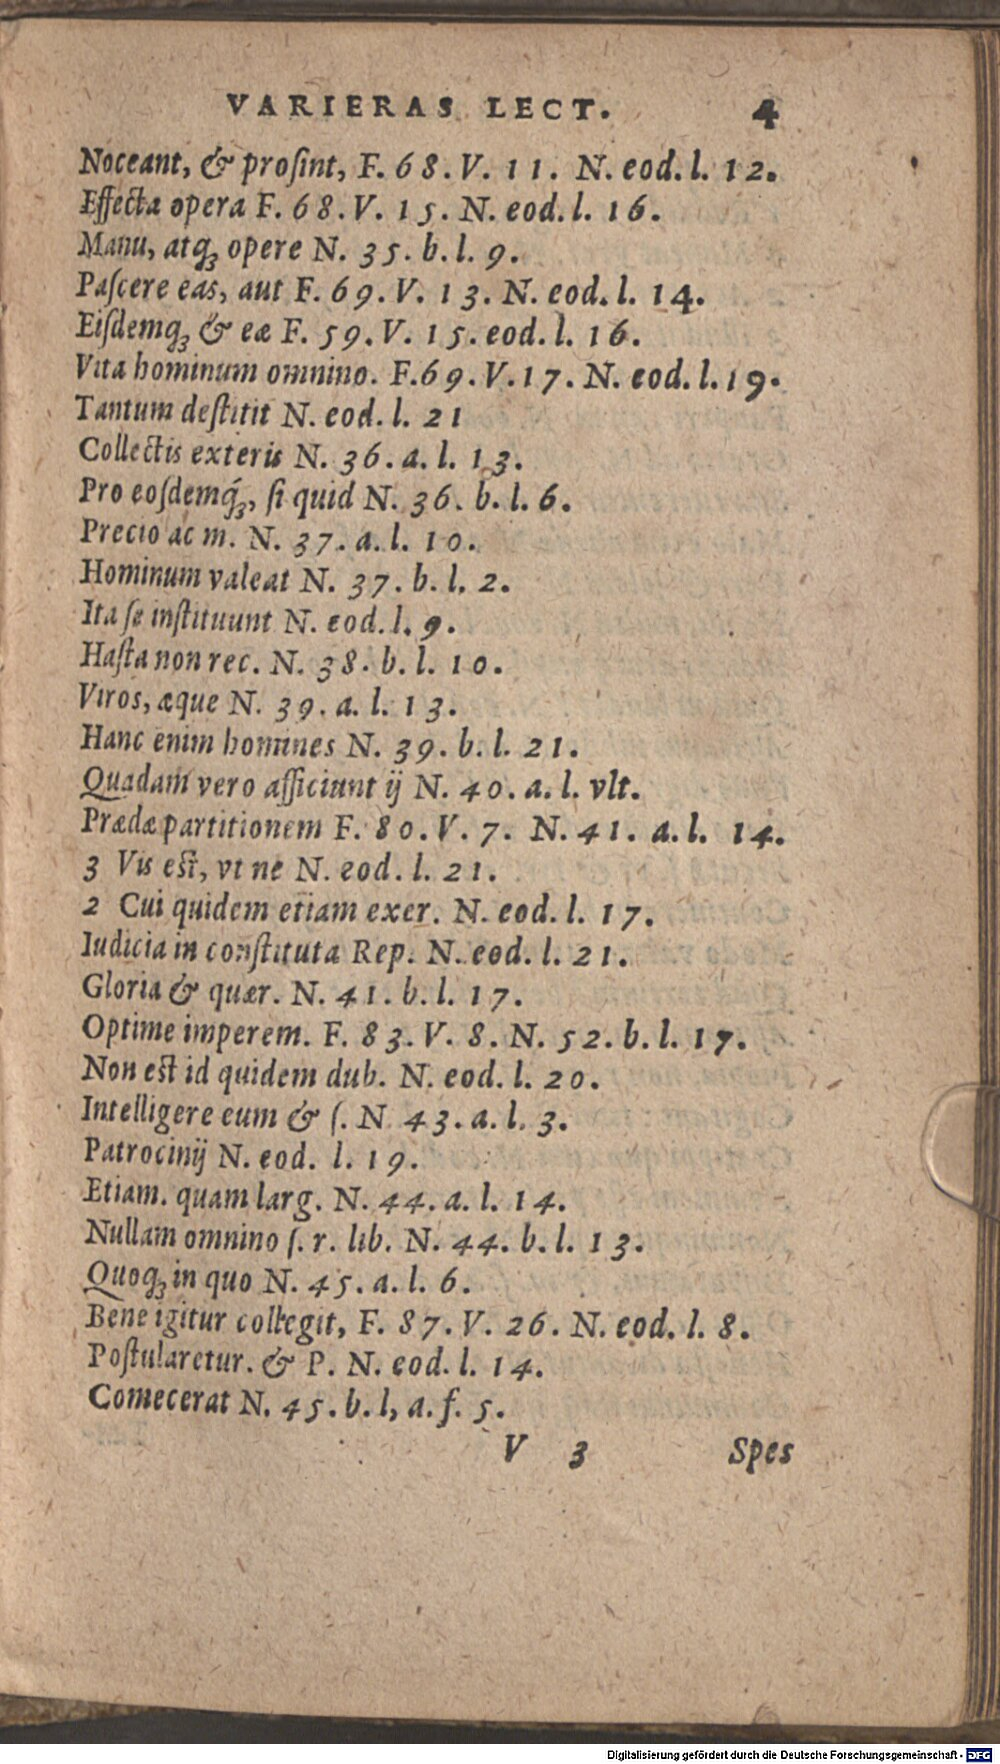 VARIERAS LECT. 4
Noceant, & proſint, F. 68. V. 11. N. eod. l. 12.
Effecta opera F. 68. V. 15. N. eod. l. 16.
Manu, atq́ꝫ opere N. 35. b. l. 9.
Paſcere eas, aut F. 69. V. 13. N. eod. l. 14.
Eiſdemqꝫ & eæ F. 59. V. 15. eod. l. 16.
Vita hominum omnino. F. 69. V. 17. N. eod. l. 19.
Tantum deſtitit N. eod. l. 21
Collectis exteris N. 36. a. l. 13.
Pro eoſdemq́ꝫ, ſi quid N. 36. b. l. 6.
Precio ac m. N. 37. a. l. 10.
Hominum valeat N. 37. b. l. 2.
Ita ſe inſtituunt N. eod. l. 9.
Haſta non rec. N. 38. b. l. 10.
Viros, æque N. 39. a. l. 13.
Hanc enim homines N. 39. b. l. 21.
Quadam vero afficiunt ij N. 40. a. l. vlt.
Prædæ partitionem F. 80. V. 7. N. 41. a. l. 14.
3 Vis eſt, vt ne N. eod. l. 21.
2 Cui quidem etiam exer. N. eod. l. 17.
Iudicia in conſtituta Rep. N. eod. l. 21.
Gloria & quær. N. 41. b. l. 17.
Optime imperem. F. 83. V. 8. N. 52. b. l. 17.
Non eſt id quidem dub. N. eod. l. 20.
Intelligere eum & ſ. N. 43. a. l. 3.
Patrocinij N. eod. l. 19.
Etiam. quam larg. N. 44. a. l. 14.
Nullam omnino ſ. r. lib. N. 44. b. l. 13.
Quoqꝫ in quo N. 45. a. l. 6.
Bene igitur collegit, F. 87. V. 26. N. eod. l. 8.
Poſtularetur. & P. N. eod. l. 14.
Comecerat N. 45. b. l, a. f. 5.
V 3 Spes
Digitalisierung gefördert durch die Deutsche Forschungsgemeinschaft - DFG